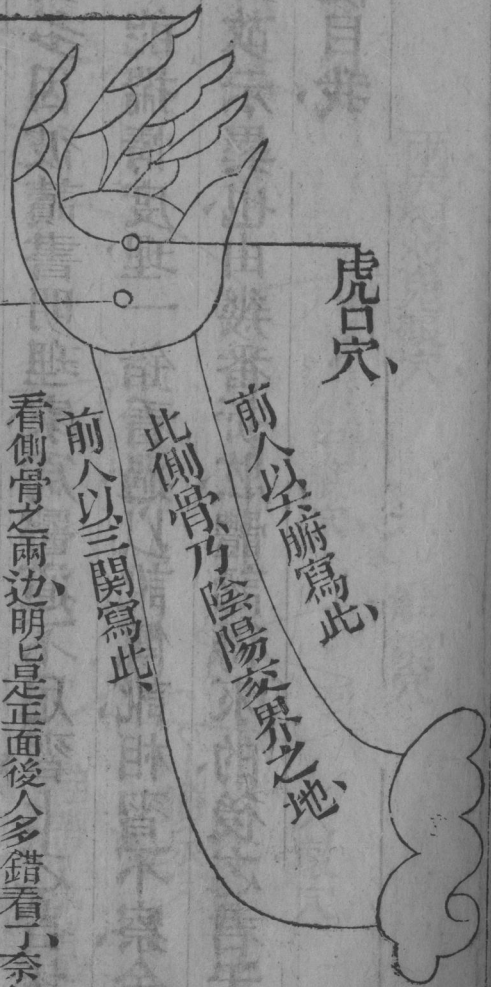 虎口穴、
前人以六腑寫此、
此側骨、乃陰陽交界之地、
前人以三関寫此、
看側骨之兩边、明匕是正面後人多錯看了、奈